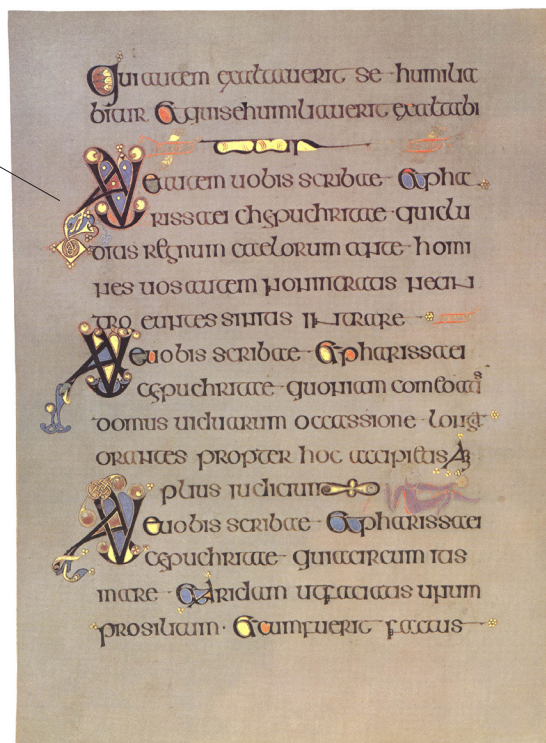 Qui autem exaltauerit se humilia
bitur Et qui se humiliauerit exaltabi
tur
Ve autem uobis scribae et pha
rissaei chypuchritae qui clu
ditis regnum caelorum ante homi
nes uos autem non intratis nec in
tro euntes sinitis intrare
Ve uobis scribae et pharissaei
chypuchritae quoniam comeditis
domus uiduarum occassione longa
orantes propter hoc accipietis Am
plius iudicium
Ve uobis scribae et pharissaei
chypuchritae quia circum itis
mare et aridam ut faciatis unum
prosilitum et cum fuerit factus